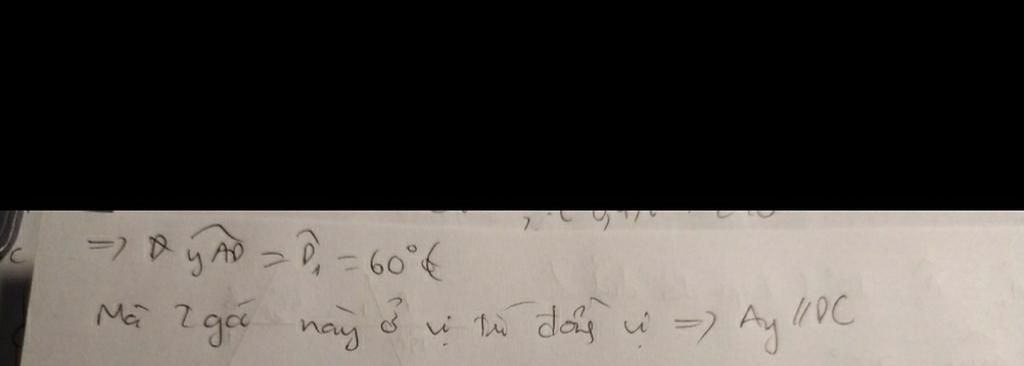 => yAD̂ = D̂₁ = 60°
Mà 2 góc này ở vị trí đồng vị => Ay // DC